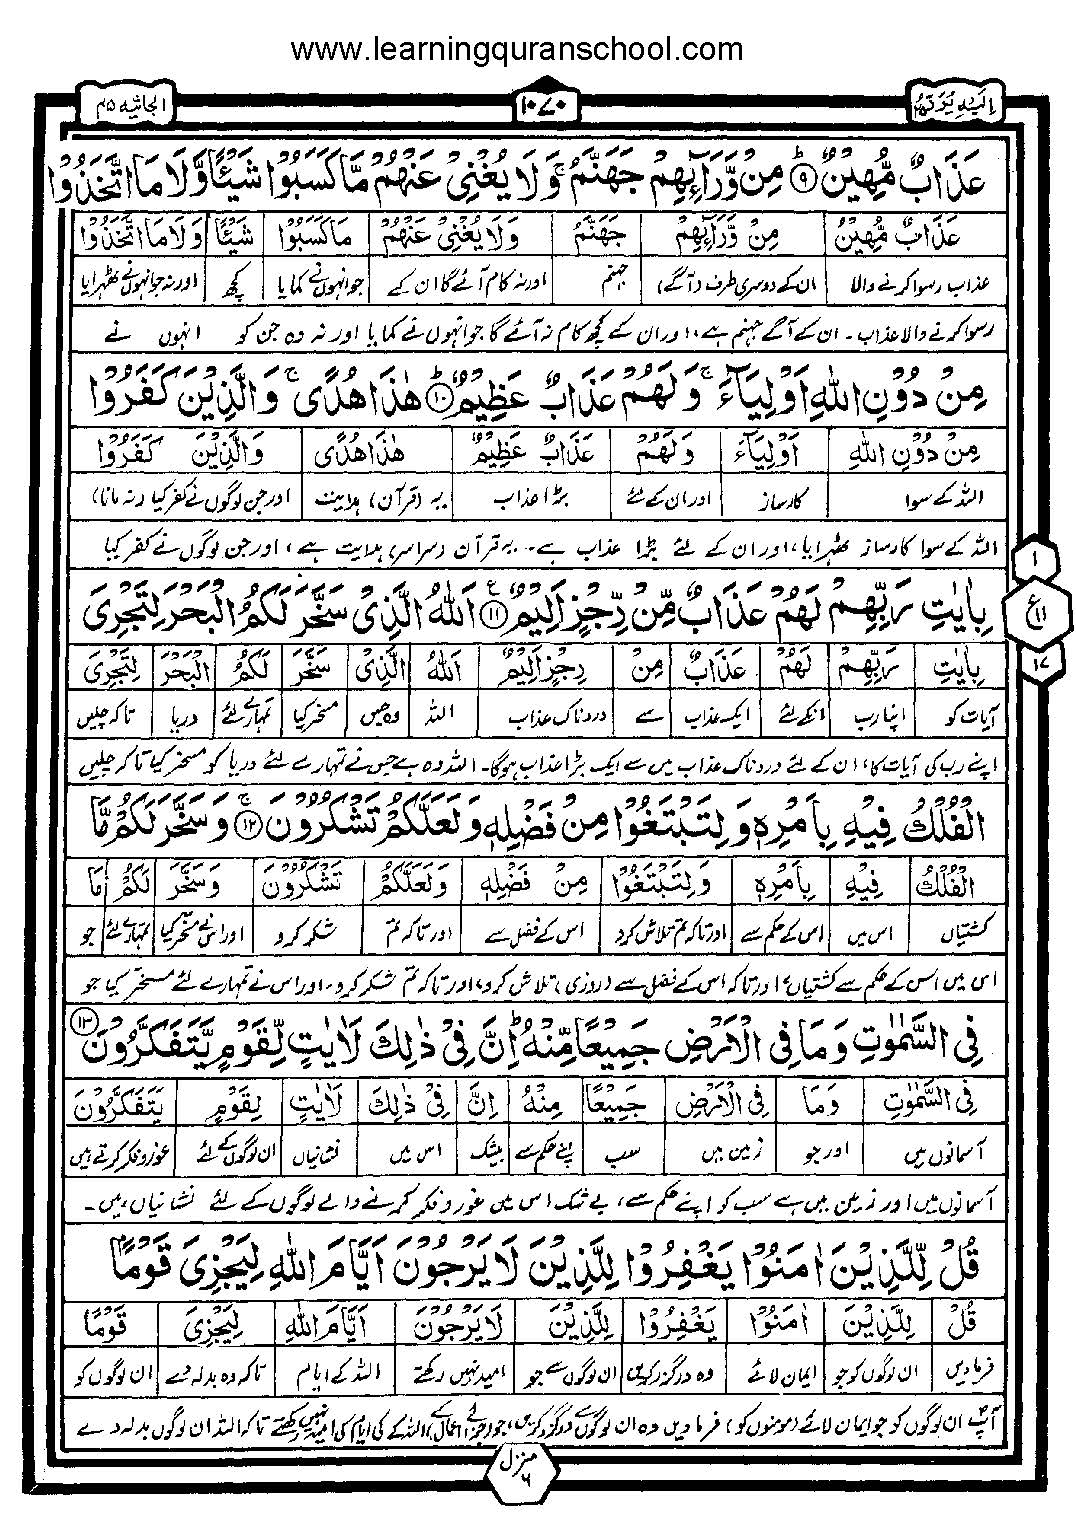 www.learningquranschool.com
اِلَیْهِ یُرَدُّ ۲۵
۱۰۷۰
الجاثیه ۴۵
عَذَابٌ مُّهِیْنٌ ۹ؕ مِنْ وَّرَآىِٕهِمْ جَهَنَّمُ ۚ وَلَا یُغْنِیْ عَنْهُمْ مَّا كَسَبُوْا شَیْـًٔا وَّلَا مَا اتَّخَذُوْا
عَذَابٌ مُّهِیْنٌ مِنْ وَّرَآىِٕهِمْ جَهَنَّمُ وَلَا یُغْنِیْ عَنْهُمْ مَا كَسَبُوْا شَیْـًٔا وَلَا مَا اتَّخَذُوْا
عذاب رسوا کرنے والا ان کے دوسری طرف (آگے) جہنم اور نہ کام آئے گا ان کے جو انہوں نے کمایا کچھ اور نہ جو انہوں نے ٹھہرایا
رسوا کرنے والا عذاب۔ ان کے آگے جہنم ہے، اور ان کے کچھ کام نہ آئے گا جو انہوں نے کمایا اور نہ وہ جن کو انہوں نے
مِنْ دُوْنِ اللّٰهِ اَوْلِیَآءَ ۚ وَلَهُمْ عَذَابٌ عَظِیْمٌ ۱۰ؕ هٰذَا هُدًی ۚ وَالَّذِیْنَ كَفَرُوْا
مِنْ دُوْنِ اللّٰهِ اَوْلِیَآءَ وَلَهُمْ عَذَابٌ عَظِیْمٌ هٰذَا هُدًی وَالَّذِیْنَ كَفَرُوْا
اللہ کے سوا کارساز اور ان کے لئے بڑا عذاب یہ (قرآن) ہدایت اور جن لوگوں نے کفر کیا (نہ مانا)
اللہ کے سوا کارساز ٹھہرایا، اور ان کے لئے بڑا عذاب ہے۔ یہ قرآن (سراسر) ہدایت ہے، اور جن لوگوں نے کفر کیا
بِاٰیٰتِ رَبِّهِمْ لَهُمْ عَذَابٌ مِّنْ رِّجْزٍ اَلِیْمٌ ۱۱۠ اَللّٰهُ الَّذِیْ سَخَّرَ لَكُمُ الْبَحْرَ لِتَجْرِیَ
بِاٰیٰتِ رَبِّهِمْ لَهُمْ عَذَابٌ مِنْ رِجْزٍ اَلِیْمٌ اَللّٰهُ الَّذِیْ سَخَّرَ لَكُمُ الْبَحْرَ لِتَجْرِیَ
آیات کو اپنا رب انکے لئے ایک عذاب سے دردناک عذاب اللہ وہ جس مسخر کیا تمہارے لئے دریا تاکہ چلیں
اپنے رب کی آیات کا، ان کے لئے دردناک عذاب میں سے ایک بڑا عذاب ہوگا۔ اللہ وہ ہے جس نے تمہارے لئے دریا کو مسخر کیا تاکہ چلیں
الْفُلْكُ فِیْهِ بِاَمْرِهٖ وَلِتَبْتَغُوْا مِنْ فَضْلِهٖ وَلَعَلَّكُمْ تَشْكُرُوْنَ ۱۲ۚ وَسَخَّرَ لَكُمْ مَّا
الْفُلْكُ فِیْهِ بِاَمْرِهٖ وَلِتَبْتَغُوْا مِنْ فَضْلِهٖ وَلَعَلَّكُمْ تَشْكُرُوْنَ وَسَخَّرَ لَكُمْ مَا
کشتیاں اس میں اس کے حکم سے اور تاکہ تم تلاش کرو اس کے فضل سے اور تاکہ تم شکر کرو اور اس نے مسخر کیا تمہارے لئے جو
اس میں اس کے حکم سے کشتیاں، اور تاکہ اس کے فضل سے (روزی) تلاش کرو، اور تاکہ تم شکر کرو۔ اور اس نے تمہارے لئے مسخر کیا جو
فِی السَّمٰوٰتِ وَمَا فِی الْاَرْضِ جَمِیْعًا مِّنْهُ ؕ اِنَّ فِیْ ذٰلِكَ لَاٰیٰتٍ لِّقَوْمٍ یَّتَفَكَّرُوْنَ ۱۳
فِی السَّمٰوٰتِ وَمَا فِی الْاَرْضِ جَمِیْعًا مِنْهُ اِنَّ فِیْ ذٰلِكَ لَاٰیٰتٍ لِقَوْمٍ یَتَفَكَّرُوْنَ
آسمانوں میں اور جو زمین میں سب اپنے حکم سے بیشک اس میں نشانیاں ان لوگوں کے لئے غور و فکر کرتے ہیں
آسمانوں میں اور زمین میں ہے سب کو اپنے حکم سے، بے شک اس میں غور و فکر کرنے والے لوگوں کے لئے نشانیاں ہیں۔
قُلْ لِّلَّذِیْنَ اٰمَنُوْا یَغْفِرُوْا لِلَّذِیْنَ لَا یَرْجُوْنَ اَیَّامَ اللّٰهِ لِیَجْزِیَ قَوْمًۢا
قُلْ لِلَّذِیْنَ اٰمَنُوْا یَغْفِرُوْا لِلَّذِیْنَ لَا یَرْجُوْنَ اَیَّامَ اللّٰهِ لِیَجْزِیَ قَوْمًا
فرما دیں ان لوگوں کو جو ایمان لائے وہ درگزر کریں ان لوگوں سے جو امید نہیں رکھتے اللہ کے ایام تاکہ وہ بدلہ دے ان لوگوں کو
آپ ان لوگوں کو جو ایمان لائے (مومنوں کو) فرما دیں وہ ان لوگوں سے درگزر کریں، جو اللہ کے ایام کی امید نہیں رکھتے تاکہ اللہ ان لوگوں بدلہ دے
۱
ع ۱۱
۱۷
منزل ۶